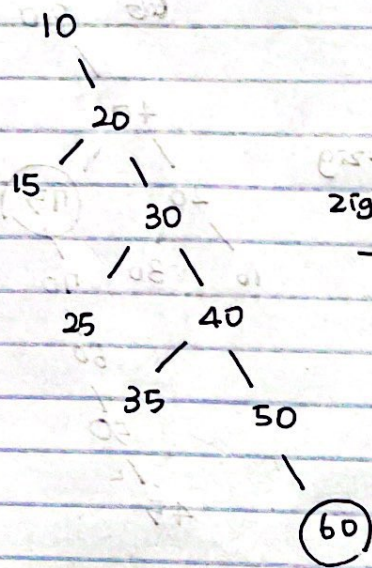 10
20
15
30
zig
25
40
35
50
60